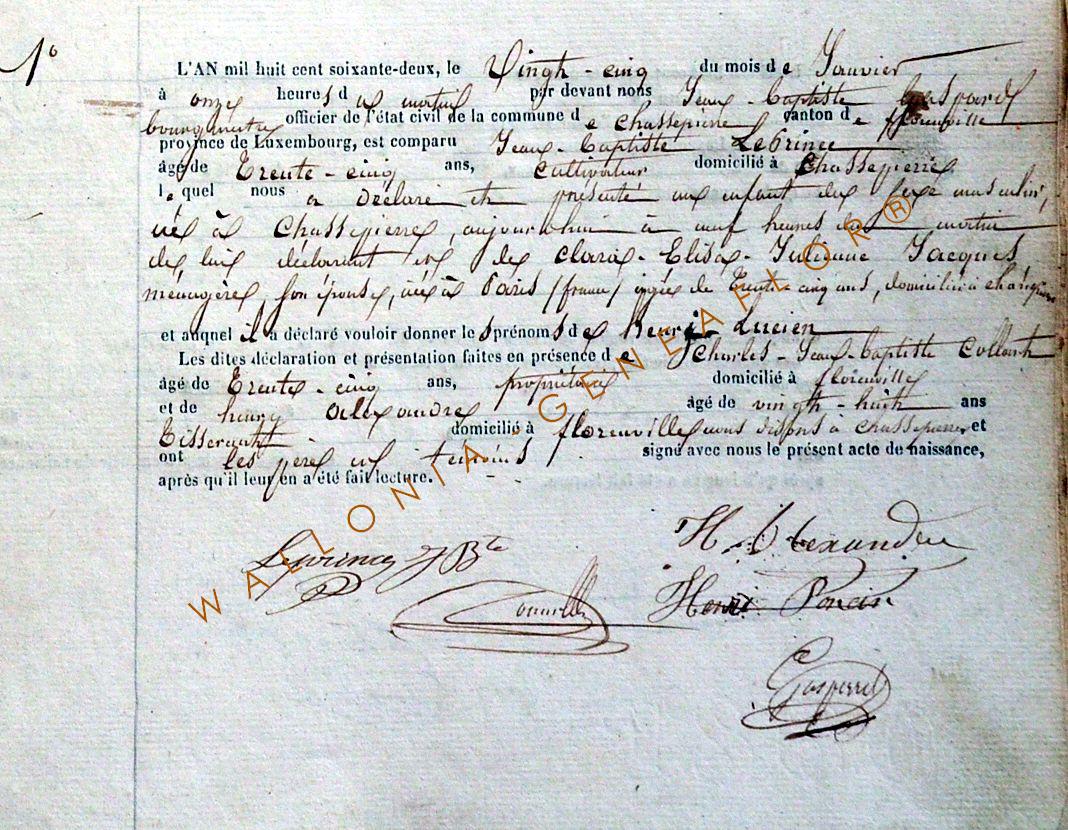 1°
L'AN mil huit cent soixante-deux, le Vingt-cinq du mois de Janvier
à onze heures du matin par devant nous Jean-Baptiste Gaspard
bourgmestre officier de l'état civil de la commune de Chassepierre canton de florenville
province de Luxembourg, est comparu Jean-Baptiste Leprince
âgé de Trente-cinq ans, Cultivateur domicilié à Chassepierre
lequel nous a Déclaré et présenté un enfant du sexe masculin,
né à Chassepierre, aujourd'hui à neuf heures du matin
de lui déclarant et de Clara-Elisa-Julienne Jacques,
ménagère, son épouse, née à Paris (france) agée de Trente-cinq ans, domiciliée à
et auquel il a déclaré vouloir donner les prénoms de Henri-Lucien
Les dites déclaration et présentation faites en présence de Charles-Jean-Baptiste
âgé de Trente-cinq ans, propriétaire domicilié à florenville
et de henry alexandre âgé de vingt-huit ans
Tisserant domicilié à florenville nous disons à chassepierre et
ont les père et témoins signé avec nous le présent acte de naissance,
après qu'il leur en a été fait lecture.
Leprince J Bte
H. Alexandre
Henri Poncin
WALLONIA GENEAFLOR®